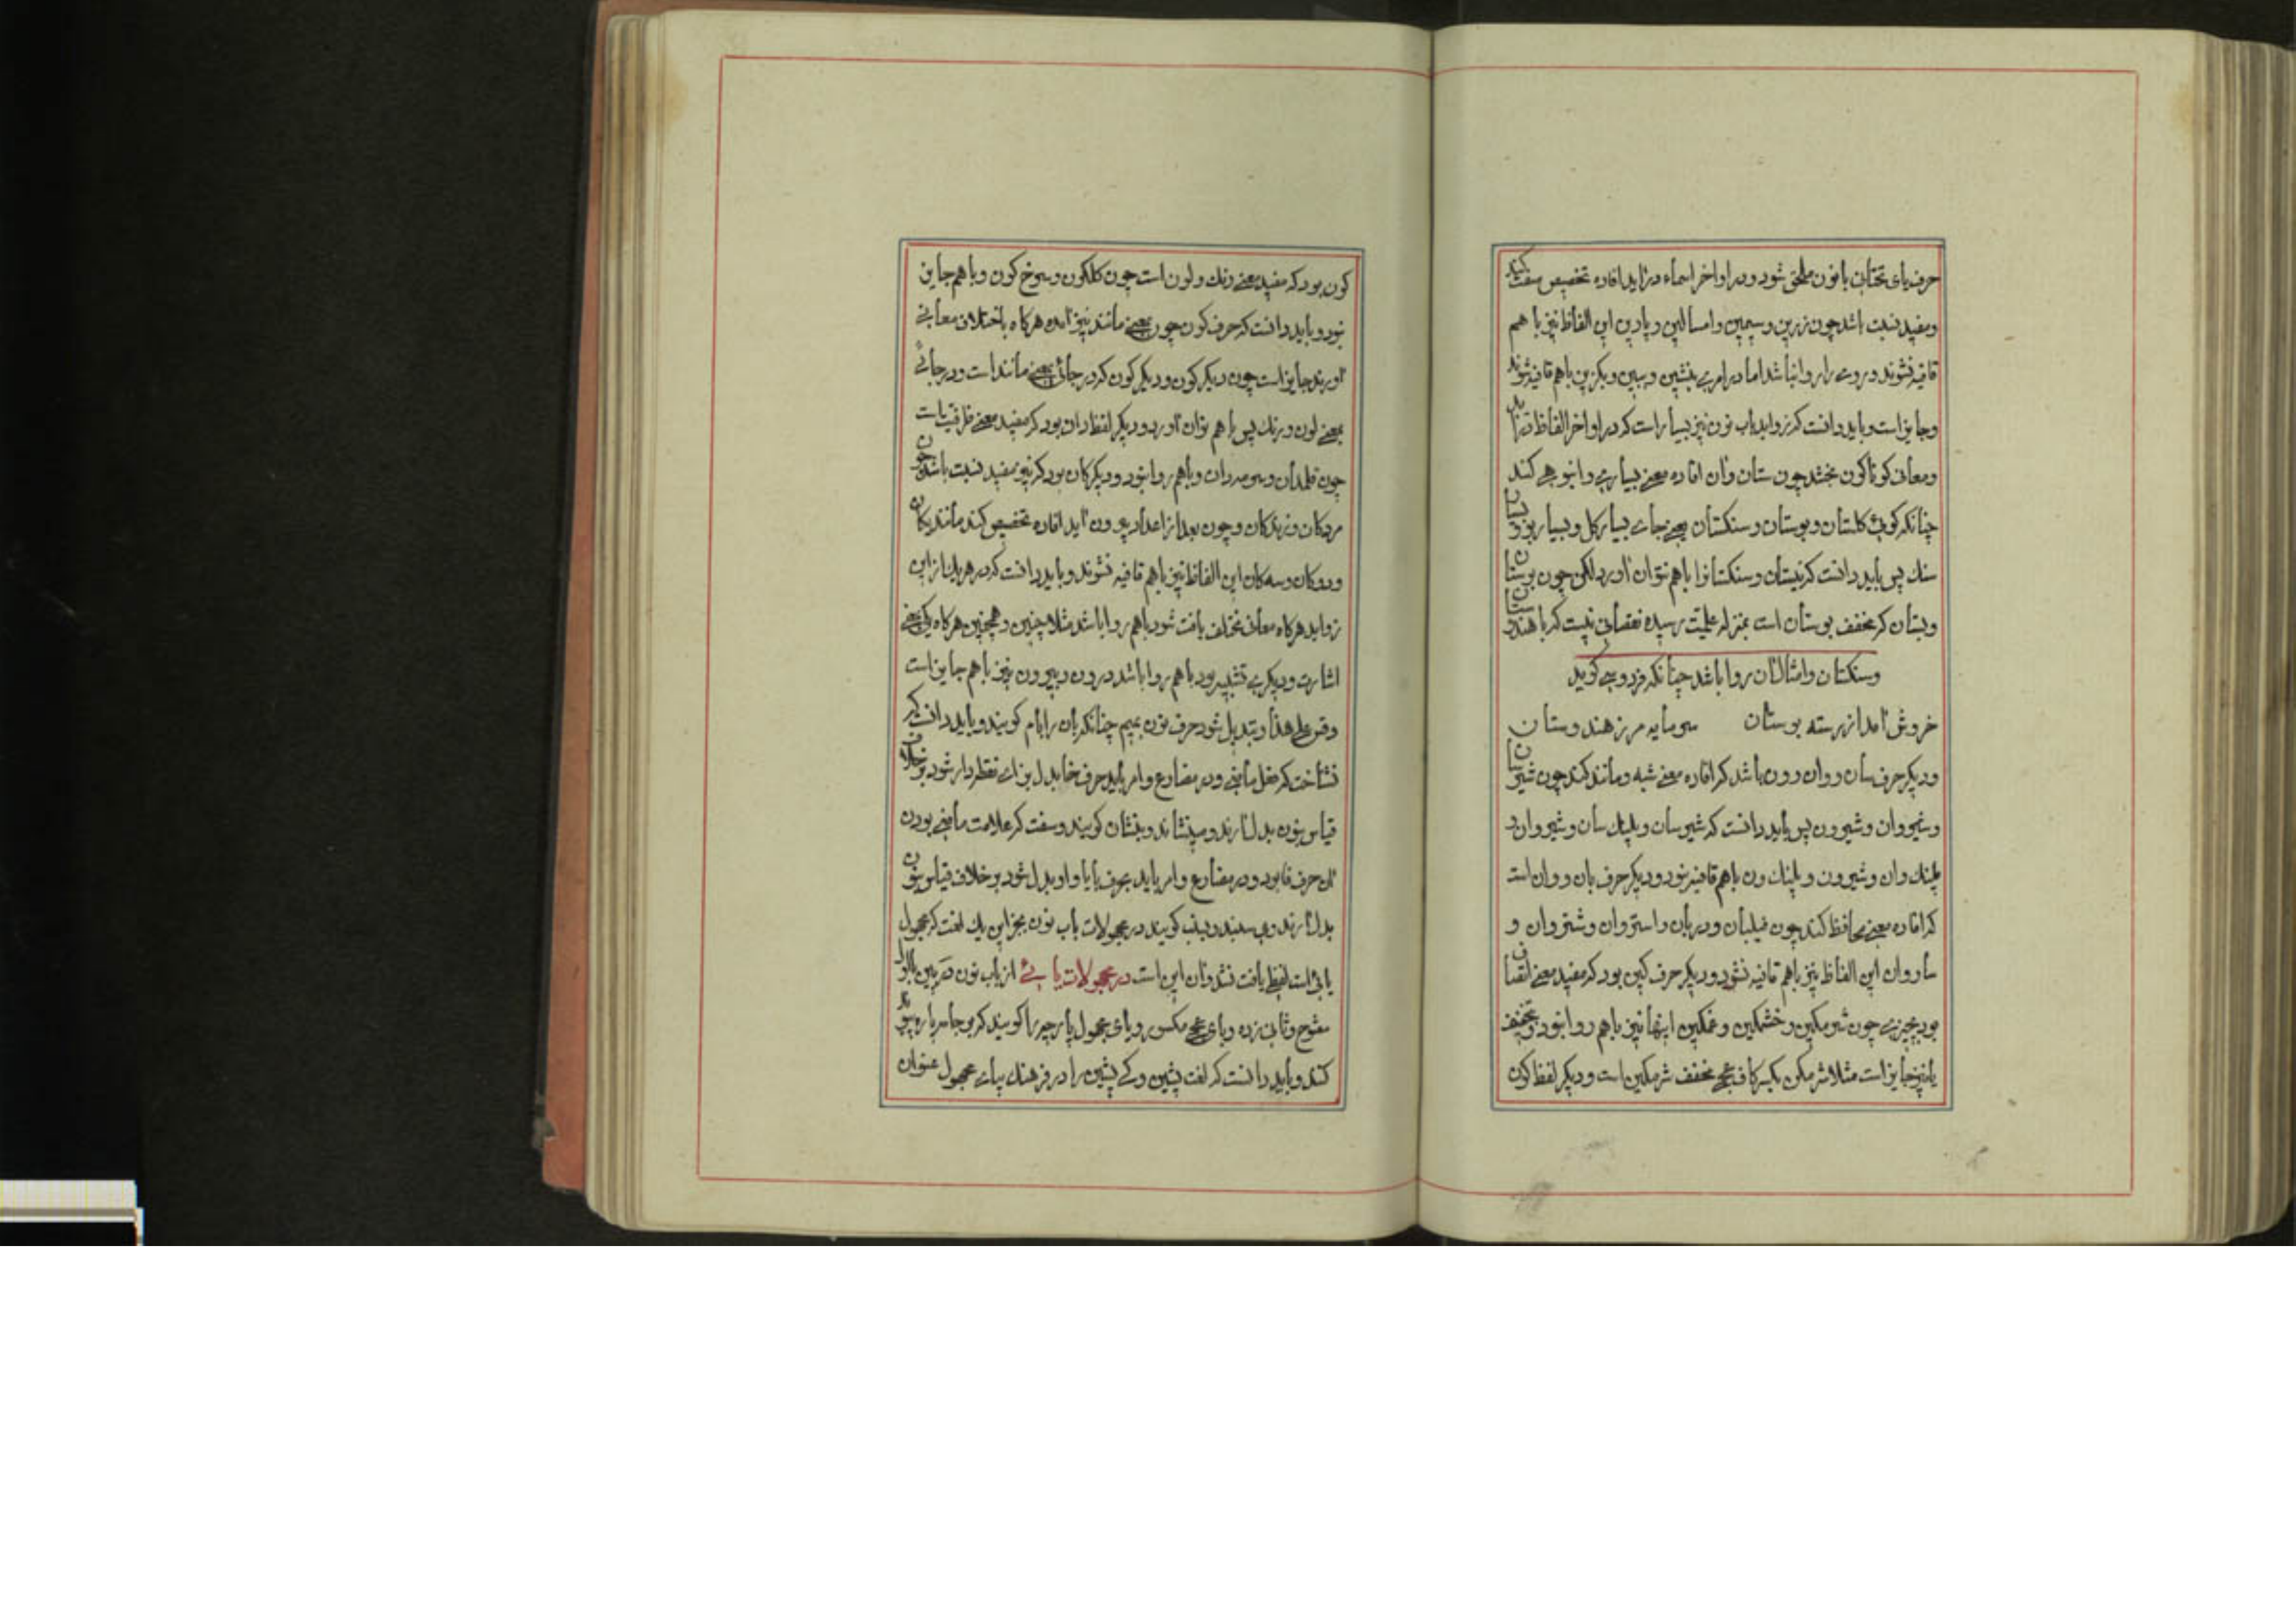 حرف یای تحتانی با نون ملحق شود و در اواخر اسماء در آید افاده تخصیص صفت کند
و مفید نسبت باشد چون زرین و سیمین و امسالین و پارین این الفاظ نیز با هم
قافیه نشوند و روی را روا نباشد اما در امر بنشین و ببین و بگزین با هم قافیه شوند
و جایز است و باید دانست که زواید باب نون نیز بسیار است که در اواخر الفاظ در آید
و معانی کوناکون بخشد چون ستان و آن افاده معنی بسیاری و انبوهی کند
چنانکه کوئی کلستان و بوستان و سنکستان یعنی جای بسیار کل و بسیار بو و بسیار
سنک پس باید دانست که نیستان و سنکستانرا با هم نتوان آورد لکن چون بوستان
و بستان که مخفف بوستان است بمنزله علمیت رسیده نقصانی نیست که با هندوستان
و سنکستان و امثال آن روا باشد چنانکه فردوسی کوید
خروش آمد از رسته بوستان سر مایه مرز هندوستان
و دیکر حرف سان و وان و ون باشد که افاده معنی شبه و مانند کند چون شیر سان
و شیروان و شیرون پس باید دانست که شیر سان و پلنک سان و شیروان و
پلنک وان و شیرون و پلنک ون با هم قافیه نبود و دیکر حرف بان و وان است
که افاده معنی محافظ کند چون فیلبان و دربان و استروان و شتروان و
ساروان این الفاظ نیز با هم قافیه نشود و دیکر حرف کین بود که مفید معنی اتصاف
بود بچیزی چون شرمکین و خشمکین و غمکین اینها نیز با هم روا نبود و تخفیف
یا نیز جایز است مثلا شرمکن بکسر کاف عجمی مخفف شرمکین است و دیکر لفظ کون
کون بود که مفید معنی رنک و لون است چون کلکون و سرخ کون و با هم جایز
نبود و باید دانست که حرف کون چون بمعنی مانند نیز آمده هرکاه باختلاف معانی
آورند جایز است چون دیکر کون و دیکر کون که در جائی بمعنی مانند است و در جائی
بمعنی لون و رنک پس با هم توان آورد و دیکر لفظ دان بود که مفید معنی ظرفیت است
چون قلمدان و سرمه دان و با هم روا نبود و دیکر کان بود که نیز مفید نسبت باشد چون
مردکان و زندکان و چون بعد از اعداد در آید افاده تخصیص کند مانند یکان
و دوکان و سه کان این الفاظ نیز با هم قافیه نشوند و باید دانست که در هر یک از این
زواید هرکاه معانی مختلف یافت شود با هم روا باشد مثلا چنین و همچنین هرکاه یکی بمعنی
اشارت و دیکری تشبیه بود با هم روا باشد درون و بیرون نیز با هم جایز است
و قس علی هذا و تبدیل شود حرف نون بمیم چنانکه بان را بام کویند و باید دانست که
نشاخت که فعل ماضی و در مضارع و امر باید حرف خا بدل بزای نقطه دار شود بر خلاف
قیاس بنون بدل آرند و مینشاند و بنشان کویند و سفت که علامت ماضی بودن
آن حرف فا بود و در مضارع و امر باید بحرف با یا واو بدل شود بر خلاف قیاس بنون
بدل آرند و می سنبد و بسنب کویند در مجهولات باب نون بجز این یک لغت که مجهول
یائی است لفظی یافت نشد و آن این است در مجهولات یائی از باب نون در پین با اول
مفتوح و ثانی زده و بای عجمی مکسور و یای مجهول پارچه را کویند که بر جامه پاره پیوند
کنند و باید دانست که لغت پشین و کی پشین را در فرهنک بیای مجهول عنوان